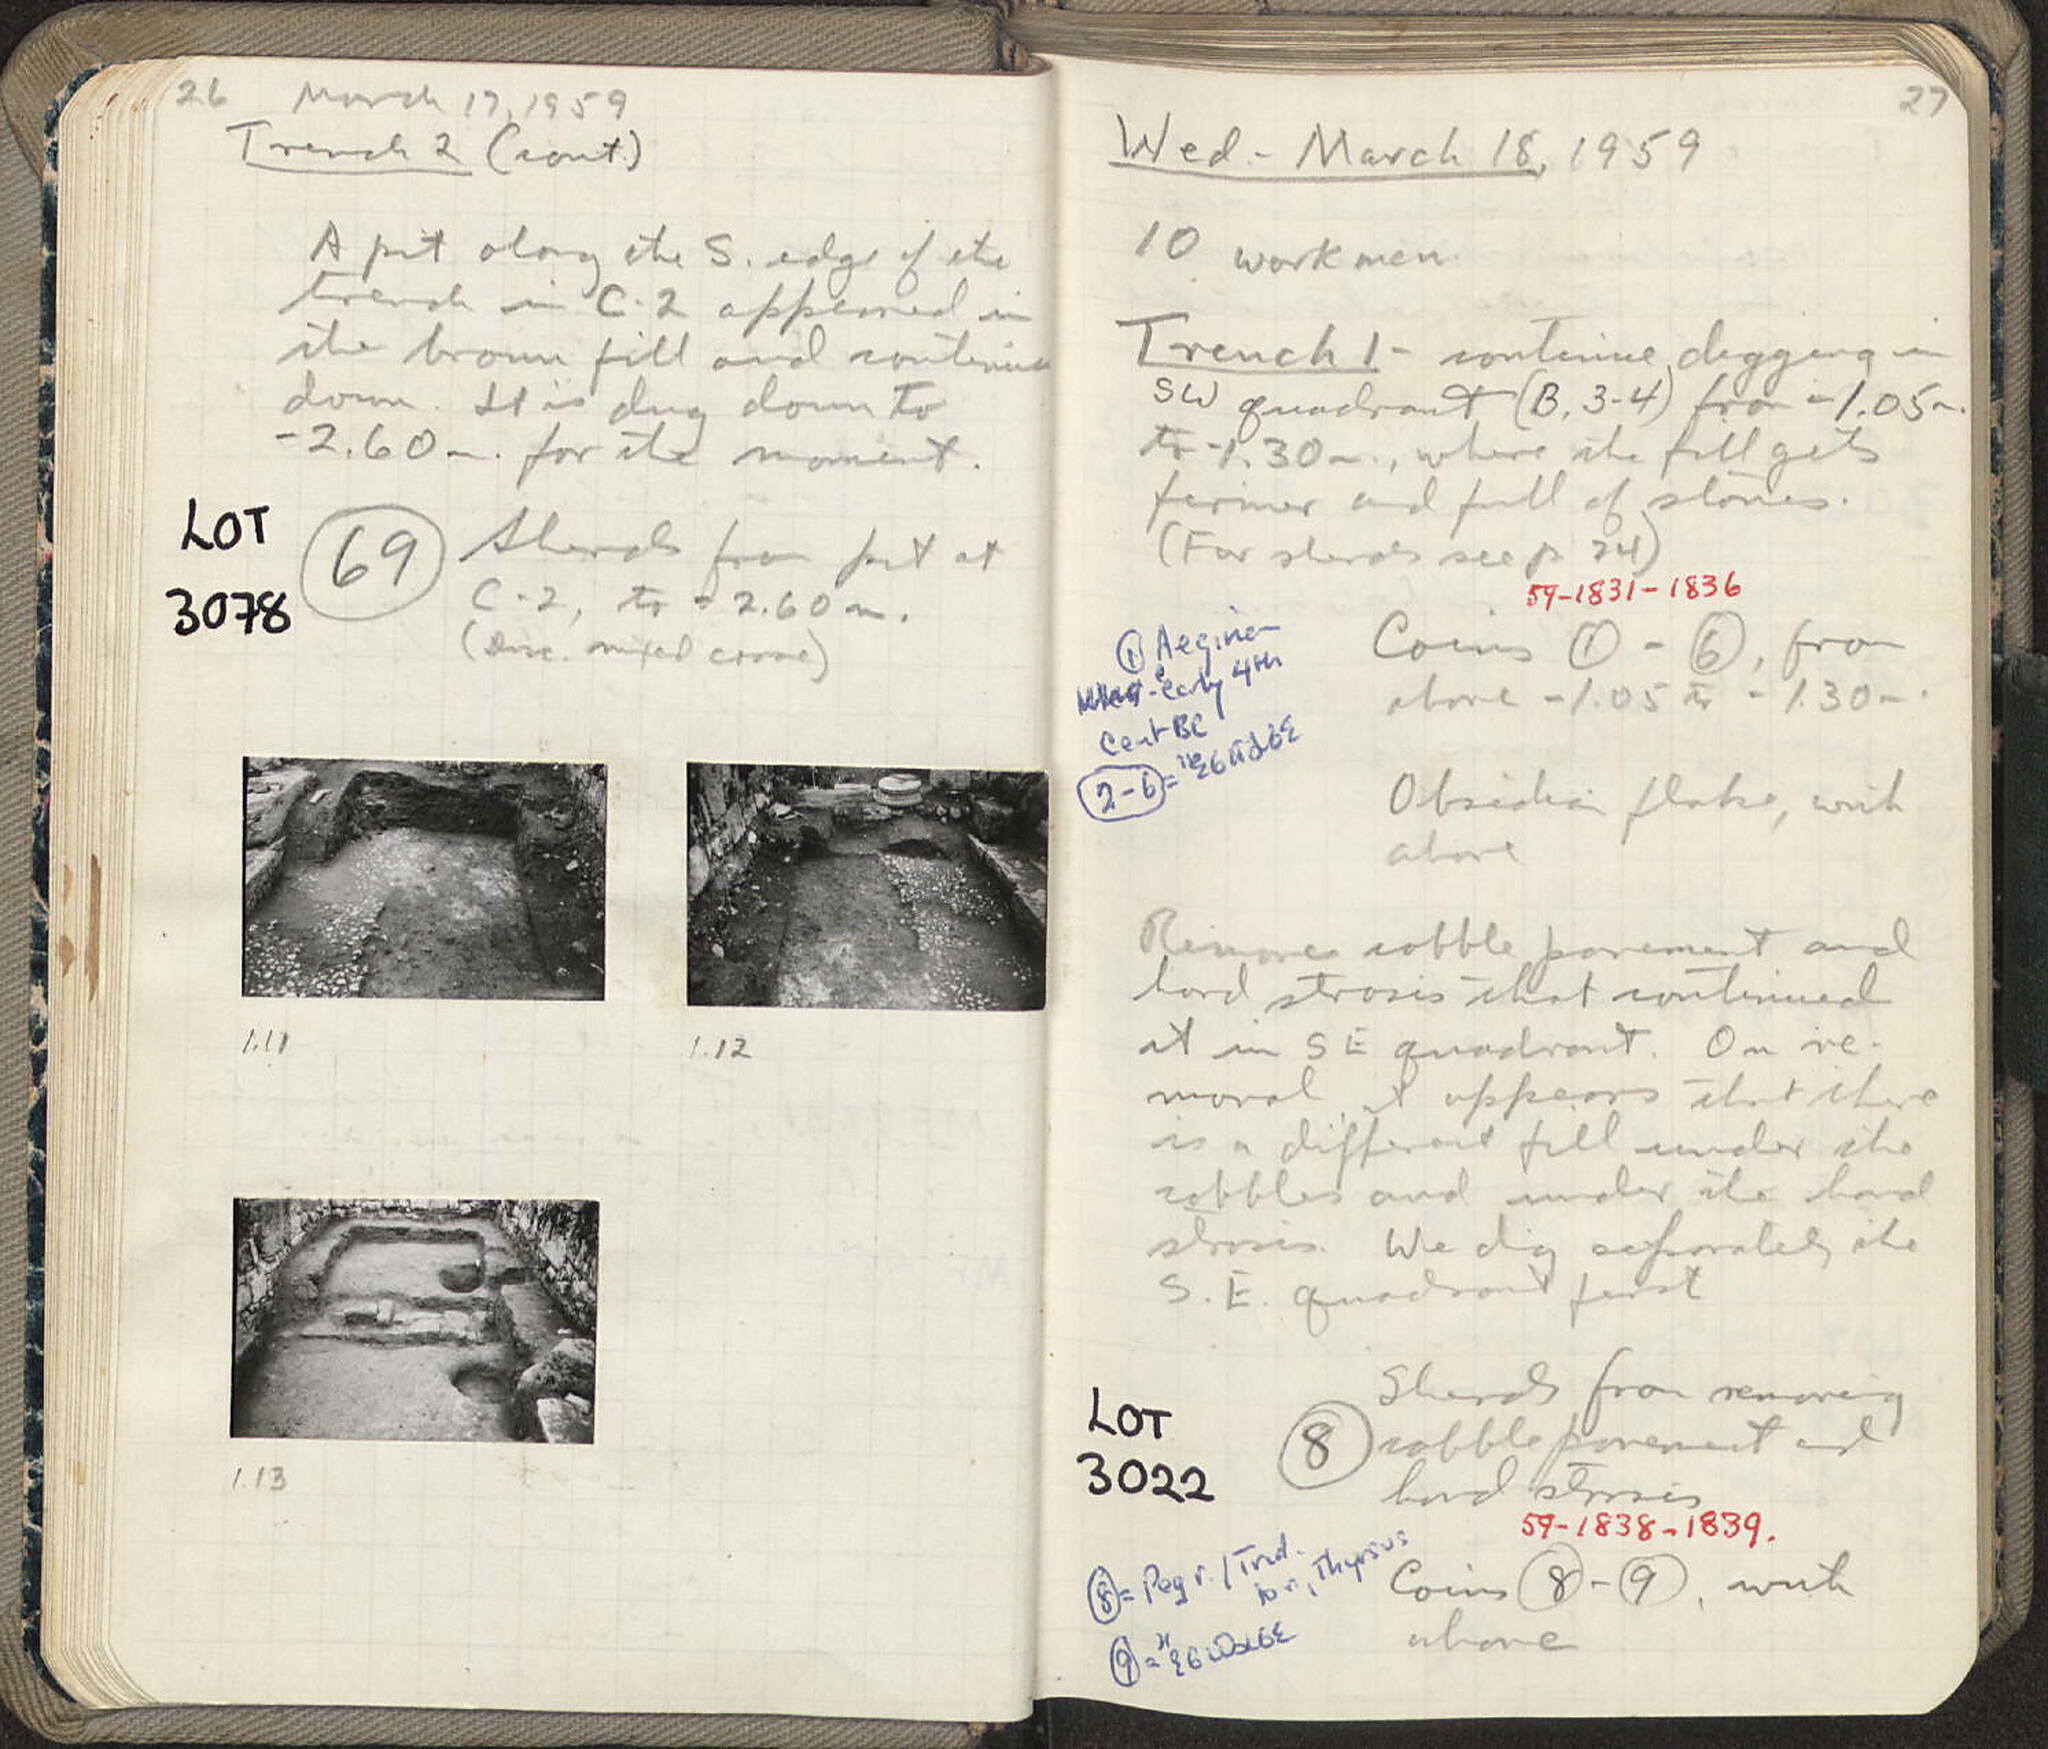 26 March 17, 1959
Trench 2 (cont.)
A pit along the S. edge of the
trench in C-2 appeared in
the brown fill and continues
down. It is dug down to
-2.60 m. for the moment.
LOT
3078
69 Sherds from pit at
C-2, to -2.60 m.
(Disc. mixed coarse)
1.11
1.12
1.13
27
Wed. - March 18, 1959
10 workmen
Trench 1 - continue digging in
SW quadrant (B, 3-4) from -1.05 m.
to -1.30 m., where the fill gets
firmer and full of stones.
(For sherds see p. 24)
59-1831-1836
Coins 1 - 6, from
above -1.05 to -1.30 m.
1 Aeginan
early 4th
Cent BC
2-6 =
Obsidian flake, with
above
Remove cobble pavement and
hard strosis that continued
it in SE quadrant. On re-
moval it appears that there
is a different fill under the
cobbles and under the hard
strosis. We dig separately the
S.E. quadrant first
LOT
3022
8 Sherds from removing
cobble pavement and
hard strosis
59-1838-1839.
Coins 8 - 9, with
above
8 = Peg r. / Trid.
to r., Thyrsus
9 =